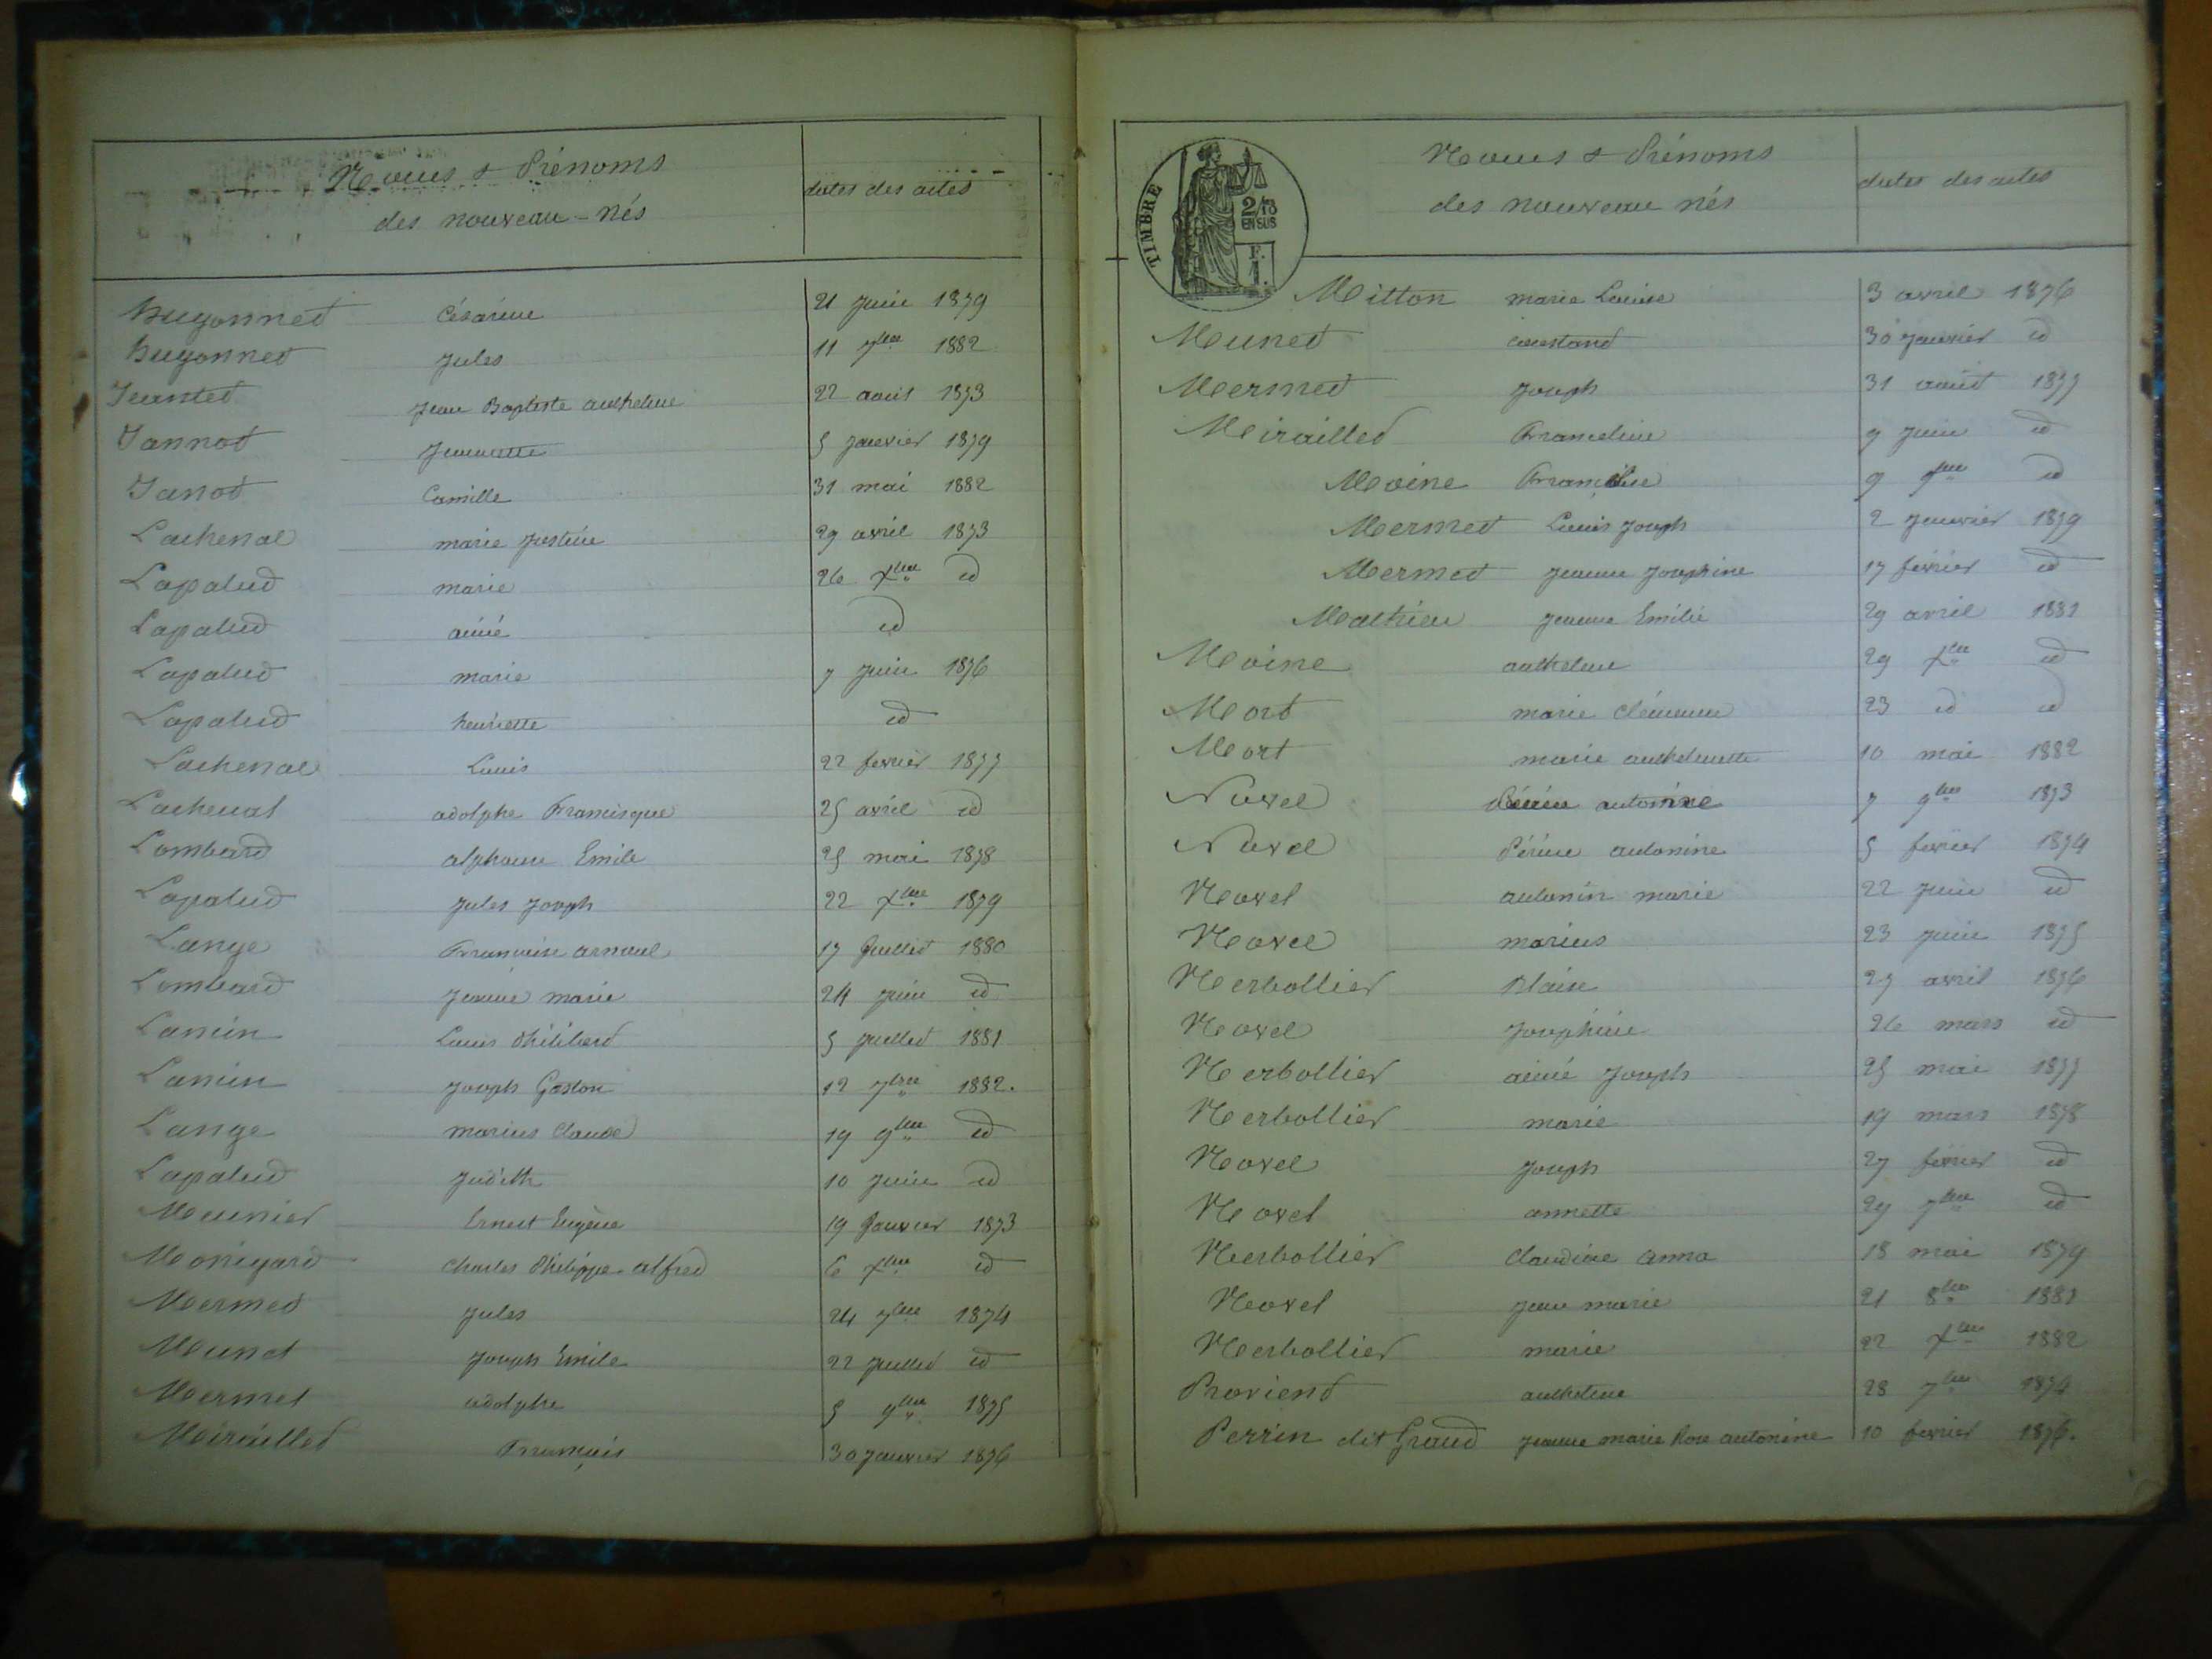 Noms & Prénoms
des nouveau-nés
dates des actes
hugonnet Césarine 21 juin 1879
hugonnet jules 11 7bre 1882
Jeantet jean Baptiste anthelme 22 août 1873
Jannot jeannette 5 janvier 1879
Janot Camille 31 mai 1882
Lachenal marie justine 29 avril 1873
Lapalud marie 26 Xbre id
Lapalud aimé id
Lapalud marie 7 juin 1876
Lapalud henriette id
Lachenal Louis 22 fevrier 1877
Lachenal adolphe Francisque 25 avril id
Lombard alphonse Emile 25 mai 1878
Lapalud jules joseph 22 Xbre 1879
Lange Françoise 17 juillet 1880
Lombard jeanne marie 24 juin id
Lanin Louis Philibert 5 juillet 1881
Lanin joseph Gaston 12 7bre 1882.
Lange marius Claude 19 9bre id
Lapalud judith 10 juin id
Meunier Ernest Eugène 19 janvier 1873
Monigard Charles Philippe alfred 6 Xbre id
Mermet jules 24 7bre 1874
Munet joseph Emile 22 juillet id
Mermet adolphe 5 9bre 1875
Miraillet François 30 janvier 1876
TIMBRE
2/10
EN SUS
F.
1.
Noms & Prénoms
des nouveau nés
dates des actes
Mitton marie Louise 3 avril 1876
Munet constant 30 janvier id
Mermet joseph 31 août 1877
Miraillet Franceline 9 juin id
Moine Franceline 9 9bre id
Mermet Louis joseph 2 janvier 1879
Mermet jeanne josephine 17 février id
Mathieu jeanne Emilie 29 avril 1881
Moine anthelme 29 Xbre id
Mort marie clémence 23 id id
Mort marie anthelmette 10 mai 1882
Novel Périne antonine 7 9bre 1873
Novel Périne antonine 5 fevrier 1874
Novel antonin marie 22 juin id
Novel marius 23 juin 1875
Nerbollier Blaise 27 avril 1876
Novel joséphine 26 mars id
Nerbollier aimé joseph 25 mai 1877
Nerbollier marie 19 mars 1878
Novel joseph 27 février id
Novel annette 29 7bre id
Nerbollier Claudine anna 18 mai 1879
Novel jean marie 21 8bre 1881
Nerbollier marie 22 Xbre 1882
Provient anthelme 28 7bre 1874
Perrin dit Grand jeanne marie Rose antonine 10 fevrier 1876.